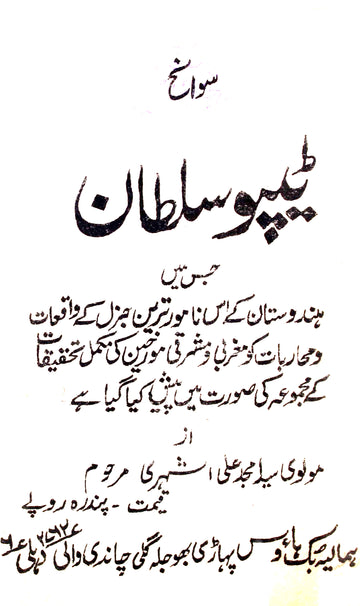 سوانح
ٹیپو سلطان
جس میں
ہندوستان کے اس نامور ترین جنرل کے واقعات
ومحاربات کو مغربی و مشرقی مورخین کی مکمل تحقیقات
کے مجموعہ کی صورت میں پیش کیا گیا ہے
از
مولوی سید امجد علی اشہری مرحوم
قیمت - پندرہ روپے
ہمالیہ بک ہاؤس پہاڑی بھوجلہ گلی چاندی والی دہلی